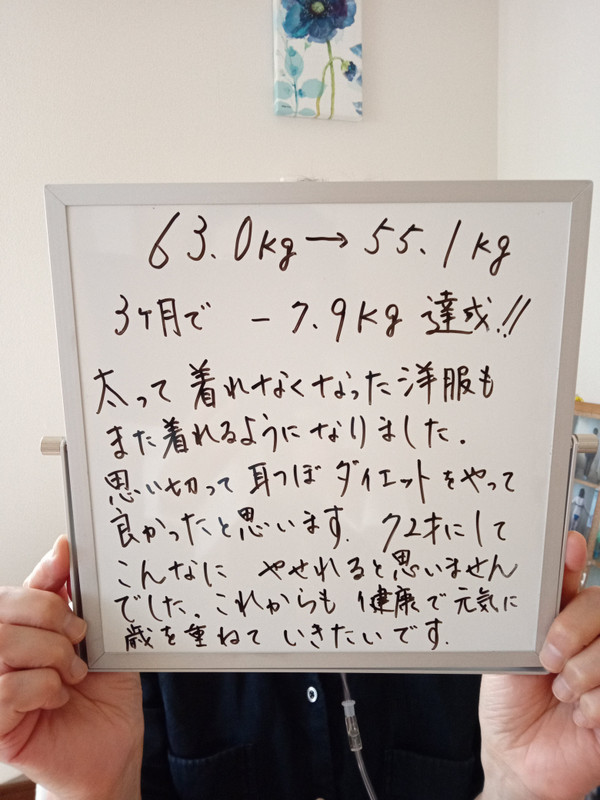 63.0kg→55.1kg
3ヶ月で -7.9kg 達成!!
太って着れなくなった洋服も
また着れるようになりました。
思い切って耳つぼダイエットをやって
良かったと思います。72才にして
こんなに やせれると思いません
でした。これからも健康で元気に
歳を重ねていきたいです。